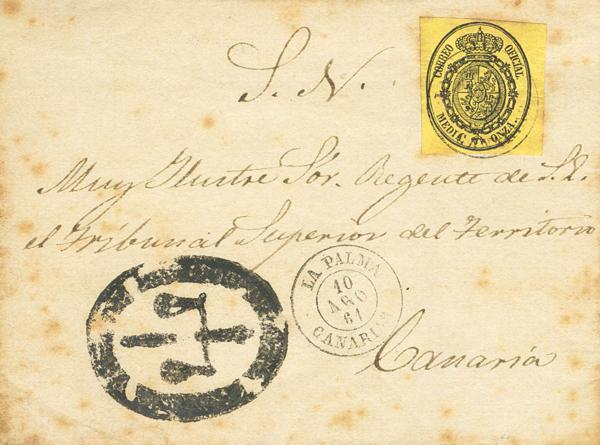 S. N.
CORREO OFICIAL
MEDIA ONZA.
Muy Ilustre Sór. Regente de S.E.
el Tribunal Superior del Territorio
LA PALMA
10
AGO
61
CANARIAS
Canaria